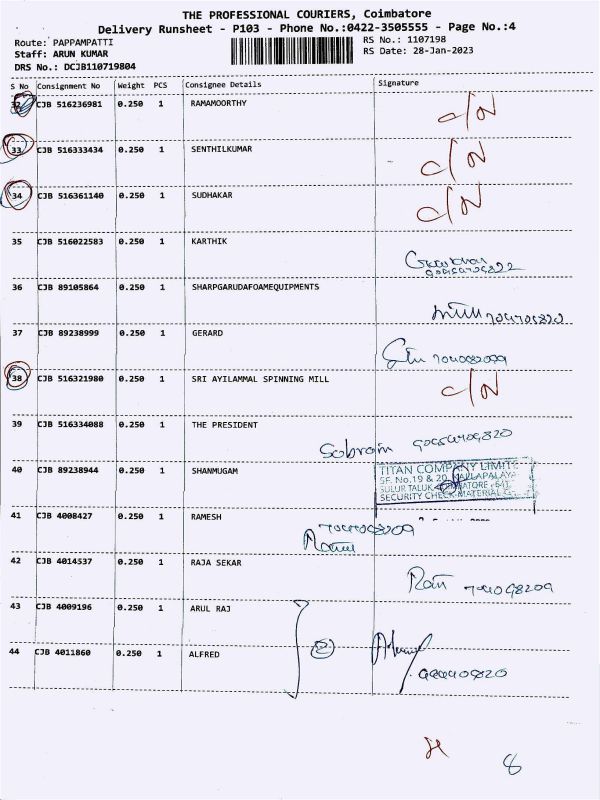 THE PROFESSIONAL COURIERS, Coimbatore
Delivery Runsheet - P103 - Phone No.:0422-3505555 - Page No.:4
Route: PAPPAMPATTI
RS No.: 1107198
Staff: ARUN KUMAR
RS Date: 28-Jan-2023
DRS No.: DCJB110719804
S No Consignment No Weight PCS Consignee Details Signature
32 CJB 516236981 0.250 1 RAMAMOORTHY C/N
33 CJB 516333434 0.250 1 SENTHILKUMAR C/N
34 CJB 516361140 0.250 1 SUDHAKAR C/N
35 CJB 516022583 0.250 1 KARTHIK
36 CJB 89105864 0.250 1 SHARPGARUDAFOAMEQUIPMENTS
37 CJB 89238999 0.250 1 GERARD
38 CJB 516321980 0.250 1 SRI AYILAMMAL SPINNING MILL C/N
39 CJB 516334088 0.250 1 THE PRESIDENT
40 CJB 89238944 0.250 1 SHANMUGAM
TITAN COMPANY LIMIT
SF. No.19 & 20,
SULUR TALUK,
SECURITY CHECK MATERIAL
41 CJB 4008427 0.250 1 RAMESH
42 CJB 4014537 0.250 1 RAJA SEKAR
43 CJB 4009196 0.250 1 ARUL RAJ
44 CJB 4011860 0.250 1 ALFRED
2
8